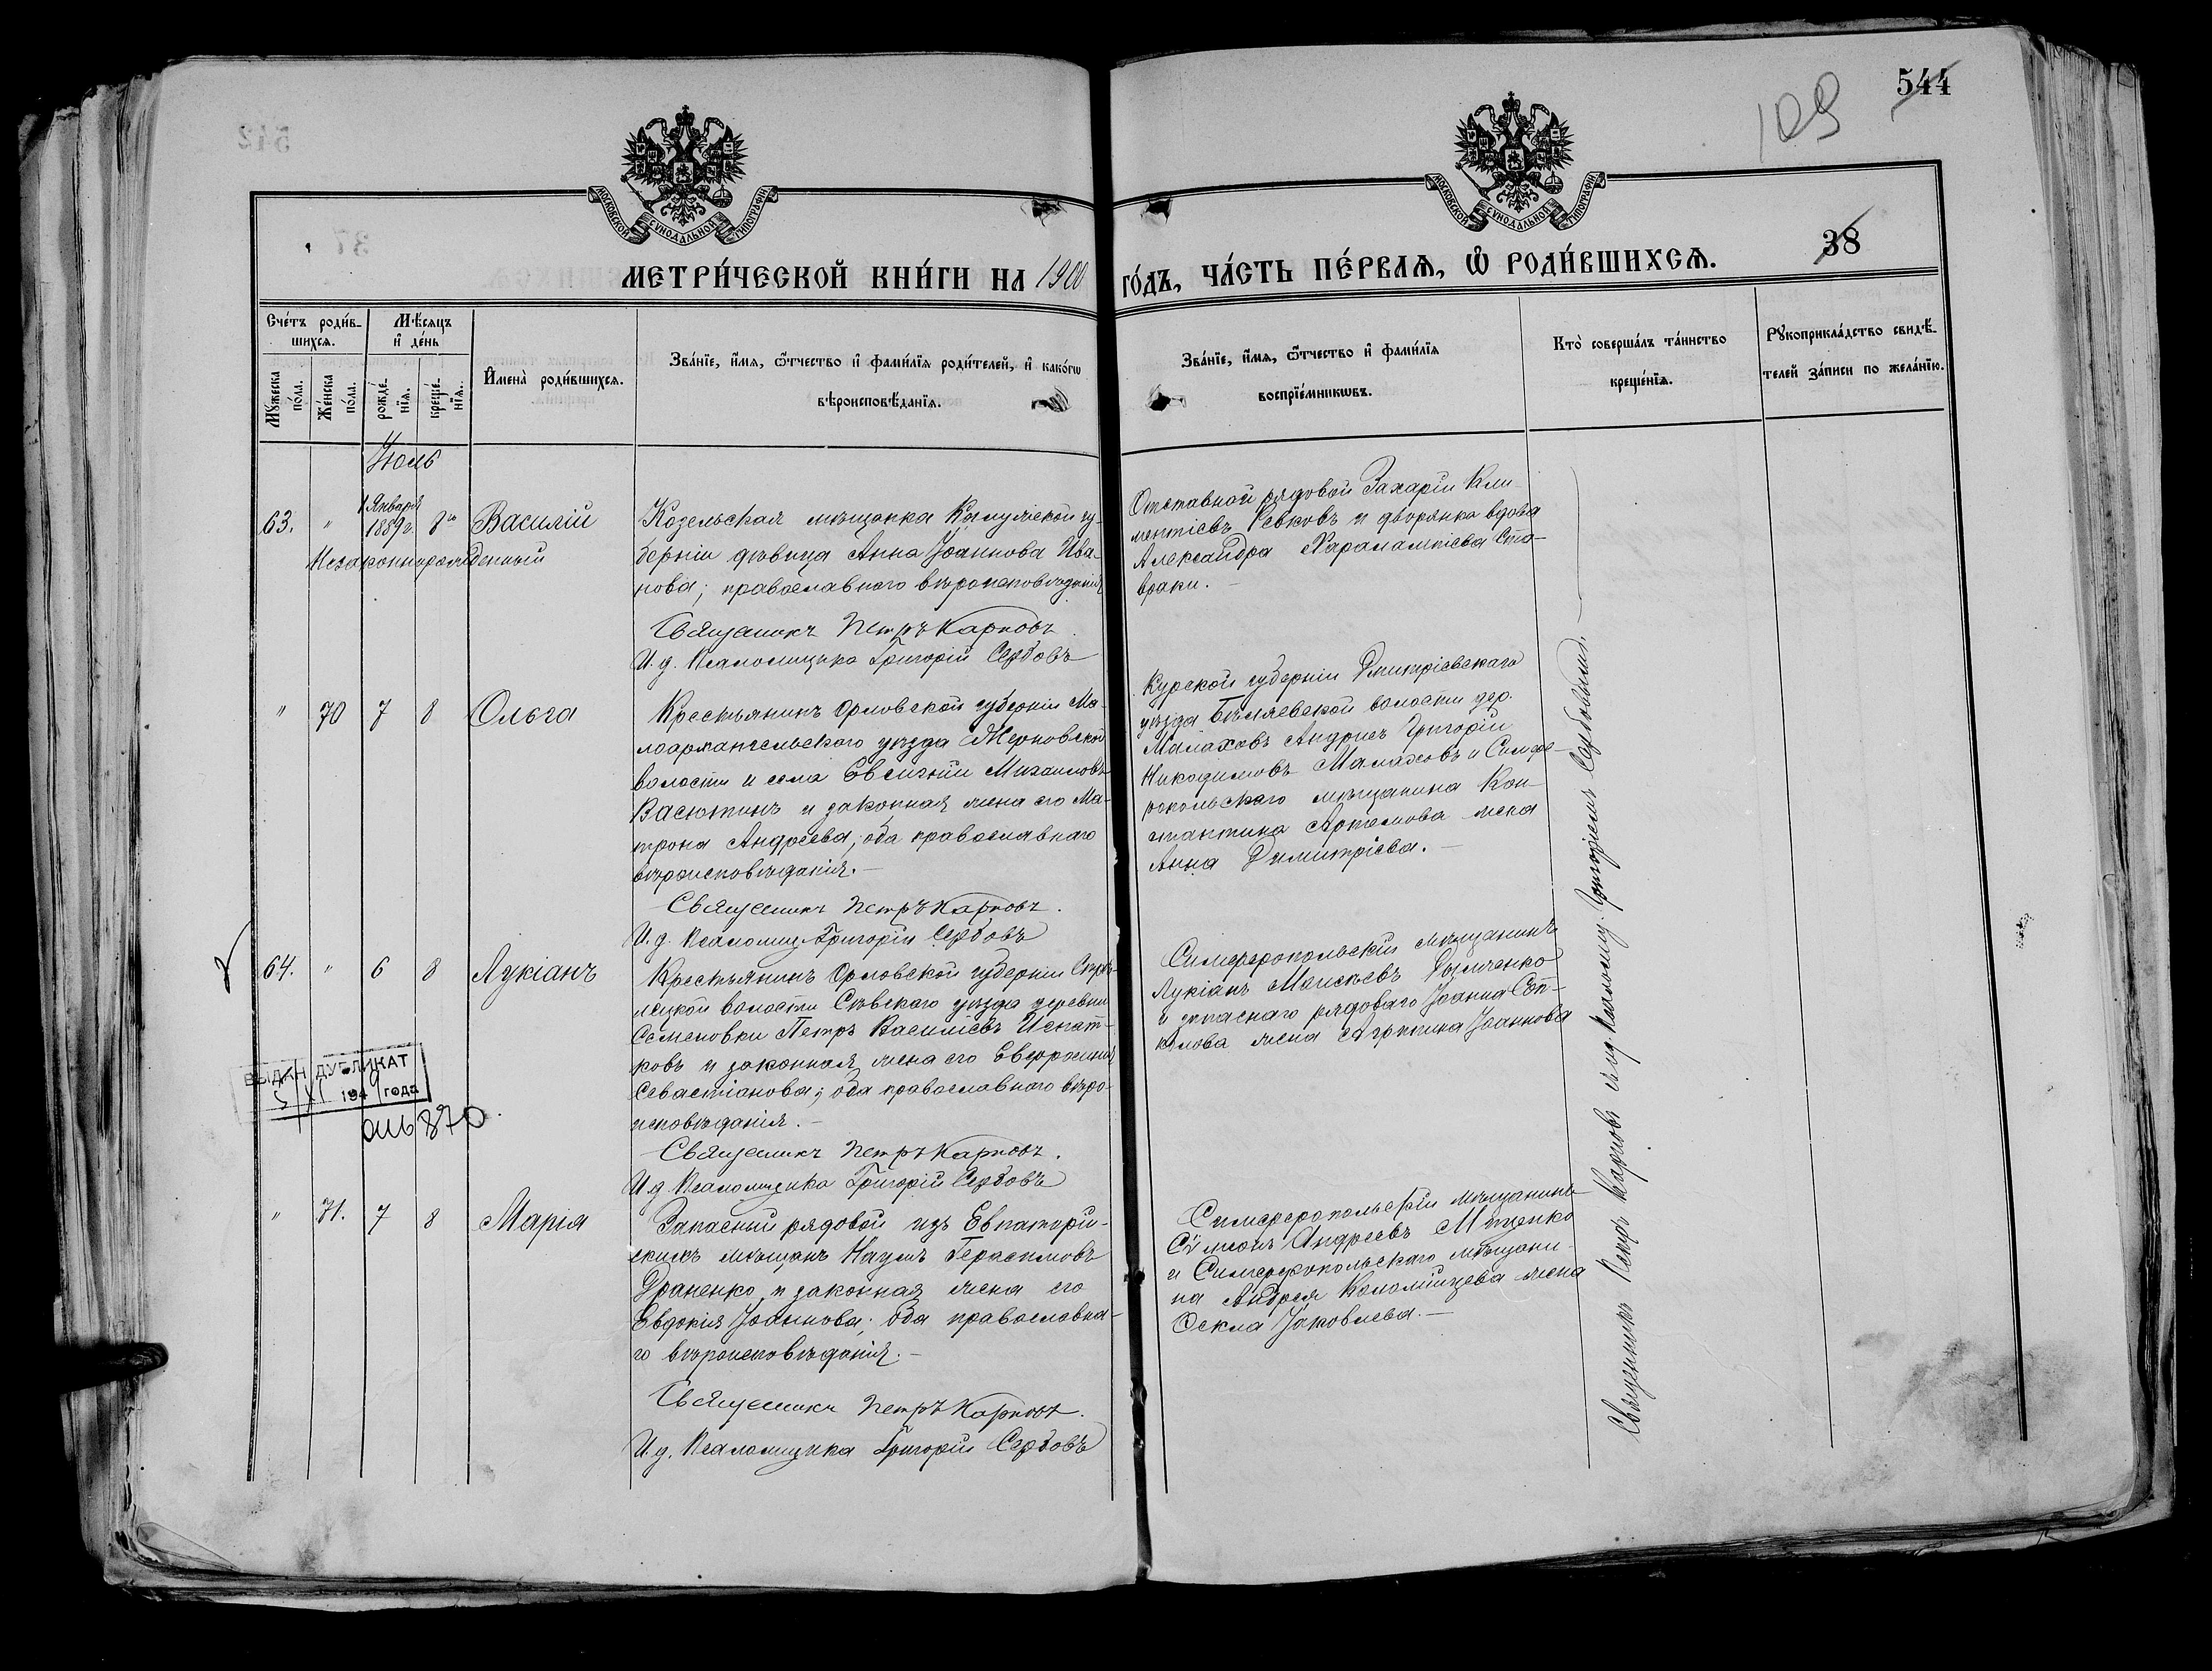 544
109
38
МОСКОВСКОЙ СѴНОДАЛЬНОЙ ТИПОГРАФІИ
МОСКОВСКОЙ СѴНОДАЛЬНОЙ ТИПОГРАФІИ
МЕТРИ́ЧЕСКОЙ КНИ́ГИ НА 1900 ГО́ДЪ, ЧА́СТЬ ПЕ́РВАЯ, Ѡ РОДИ́ВШИХСЯ.
Счётъ роди́в-
шихся.
Мꙋ́жеска по́ла.
Же́нска по́ла.
Мѣ́сяцъ
и҆ де́нь
рожде́-
нїя.
креще́-
нїя.
И҆мена̀ роди́вшихся.
Зва́нїе, и҆́мя, ѻ҆́тчество и҆ фами́лїя роди́телей, и҆ како́гѡ
вѣроисповѣ́данїя.
Зва́нїе, и҆́мя, ѻ҆́тчество и҆ фами́лїя
воспрїе́мникѡвъ.
Кто̀ соверша́лъ та́инство
креще́нїя.
Рꙋкоприкла́дство свидѣ́-
телей за́писи по жела́нїю.
Іюль
63. " 1 Января 1889 г. 8го Василій
Незаконнорожденный
Козельская мѣщанка Калужской гу-
берніи дѣвица Анна Іоаннова Ива-
нова; православнаго вѣроисповѣданія
Священникъ Петръ Карповъ.
И. д. Псаломщика Григорій Сербовъ
Отставной рядовой Захарій Кли-
ментіевъ Ревковъ и дворянка вдова
Александра Харалампіева Ста-
враки. –
" 70 7 8 Ольга
Крестьянинъ Орловской губерніи Ма-
лоархангельскаго уѣзда Жерновской
волости и села Евсигній Михаиловъ
Васютинъ и законная жена его Ма-
трона Андреева; оба православнаго
вѣроисповѣданія. –
Священникъ Петръ Карповъ.
И. д. Псаломщ. Григорій Сербовъ
Курской губерніи Дмитріевскаго
уѣзда Бѣляевской волости дер.
Малаховъ Андрей Григорій
Никодимовъ Малаховъ и Симфе-
ропольскаго мѣщанина Кон-
стантина Артемова жена
Анна Димитріева. –
64. " 6 8 Лукіанъ
Крестьянинъ Орловской губерніи
волости Сѣвскаго уѣзда деревни
Семеновки Петръ Василіевъ Игнат-
ковъ и законная жена его Евфросинія
Севастіанова; оба православнаго вѣро-
исповѣданія. –
Священникъ Петръ Карповъ.
И. д. Псаломщика Григорій Сербовъ
Симферопольскій мѣщанинъ
Лукіанъ Моисеевъ Дымченко
и запаснаго рядоваго Іоанна
жена Агрипина Іоаннова
ВЫДАН ДУБЛИКАТ
5 XI 1949 года
870
" 71. 7 8 Марія
Запасный рядовой изъ Евпаторій-
скихъ мѣщанъ Наумъ Герасимовъ
Драненко и законная жена его
Евдокія Іоаннова; оба православна-
го вѣроисповѣданія. –
Священникъ Петръ Карповъ.
И. д. Псаломщика Григорій Сербовъ
Симферопольскій мѣщанинъ
Сѵмеонъ Андреевъ Мищенко
и Симферопольскаго мѣщани-
на Андрея Коломійцева жена
Ѳекла Іаковлева. –
Священникъ Петръ Карповъ съ и.д. псаломщ. Григоріемъ Сербовымъ. –